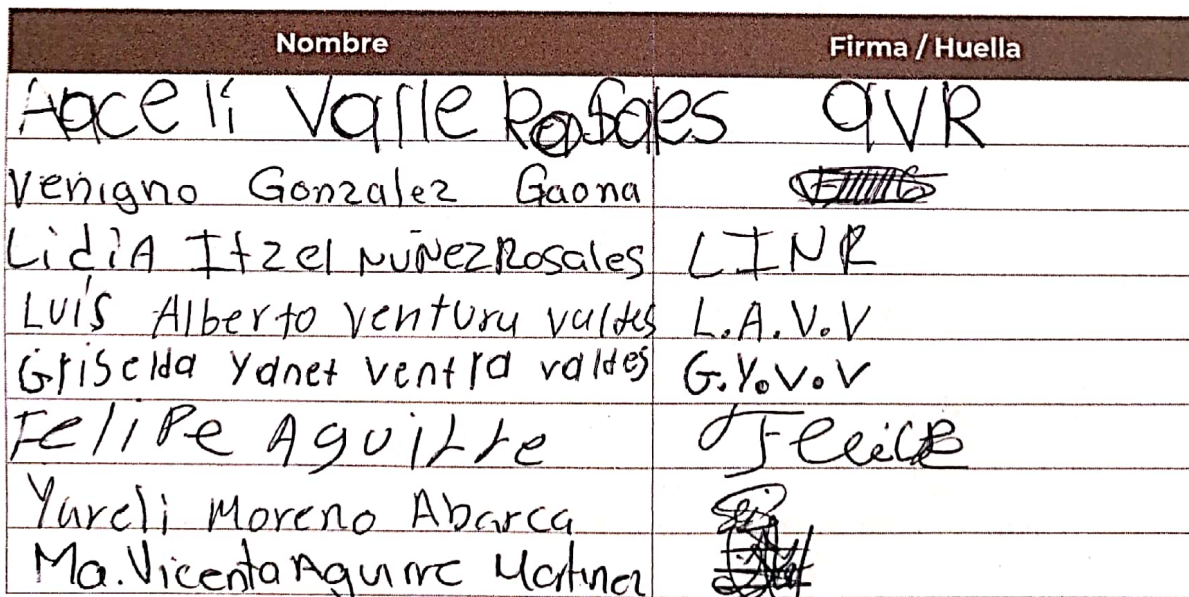 Nombre Firma / Huella
Aaceli Valle Rosaes aVR
Venigno Gonzalez Gaona
LidiA Itzel NuÑez Rosales LINR
Luís Alberto Ventura valdes L.A.V.V
Griselda Yanet ventra valdes G.Y.V.V
Felipe Aguirre Felipe
Yareli Moreno Abarca
Ma. Vicenta Aguirre Martinez